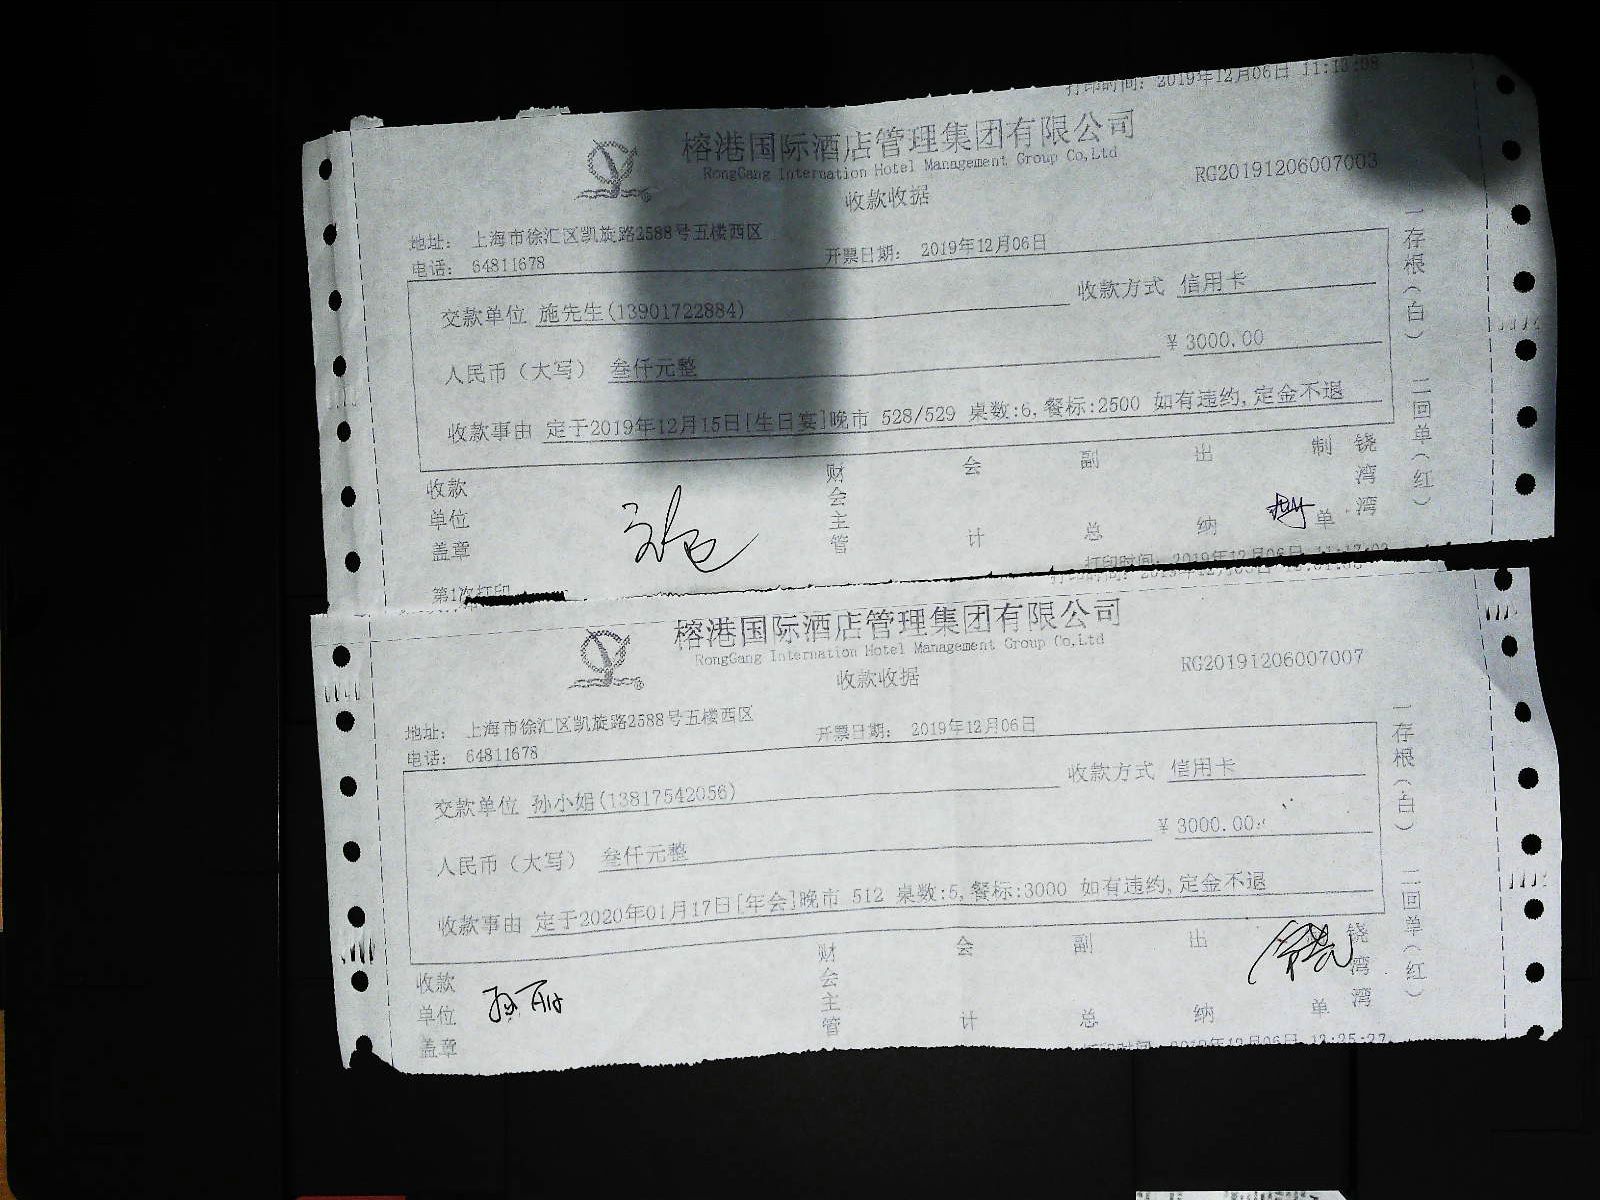 打印时间: 2019年12月06日 11:13:08
榕港国际酒店管理集团有限公司
RongGang Internation Hotel Management Group Co,Ltd
RG20191206007003
收款收据
地址: 上海市徐汇区凯旋路2588号五楼西区
电话: 64811678
开票日期: 2019年12月06日
交款单位 施先生(13901722884)
收款方式 信用卡
人民币(大写) 叁仟元整
¥ 3000.00
收款事由 定于2019年12月15日[生日宴]晚市 528/529 桌数:6,餐标:2500 如有违约,定金不退
一存根(白) 二回单(红)
收款单位盖章
财会主管
会计
副总
出纳
制单
饶湾湾
第1次打印
打印时间: 2019年12月06日 11:17:02
榕港国际酒店管理集团有限公司
RongGang Internation Hotel Management Group Co,Ltd
RG20191206007007
收款收据
地址: 上海市徐汇区凯旋路2588号五楼西区
电话: 64811678
开票日期: 2019年12月06日
交款单位 孙小姐(13817542056)
收款方式 信用卡
人民币(大写) 叁仟元整
¥ 3000.00
收款事由 定于2020年01月17日[年会]晚市 512 桌数:5,餐标:3000 如有违约,定金不退
一存根(白) 二回单(红)
收款单位盖章
财会主管
会计
副总
出纳
单
饶湾湾
打印时间: 2019年12月06日 13:25:27